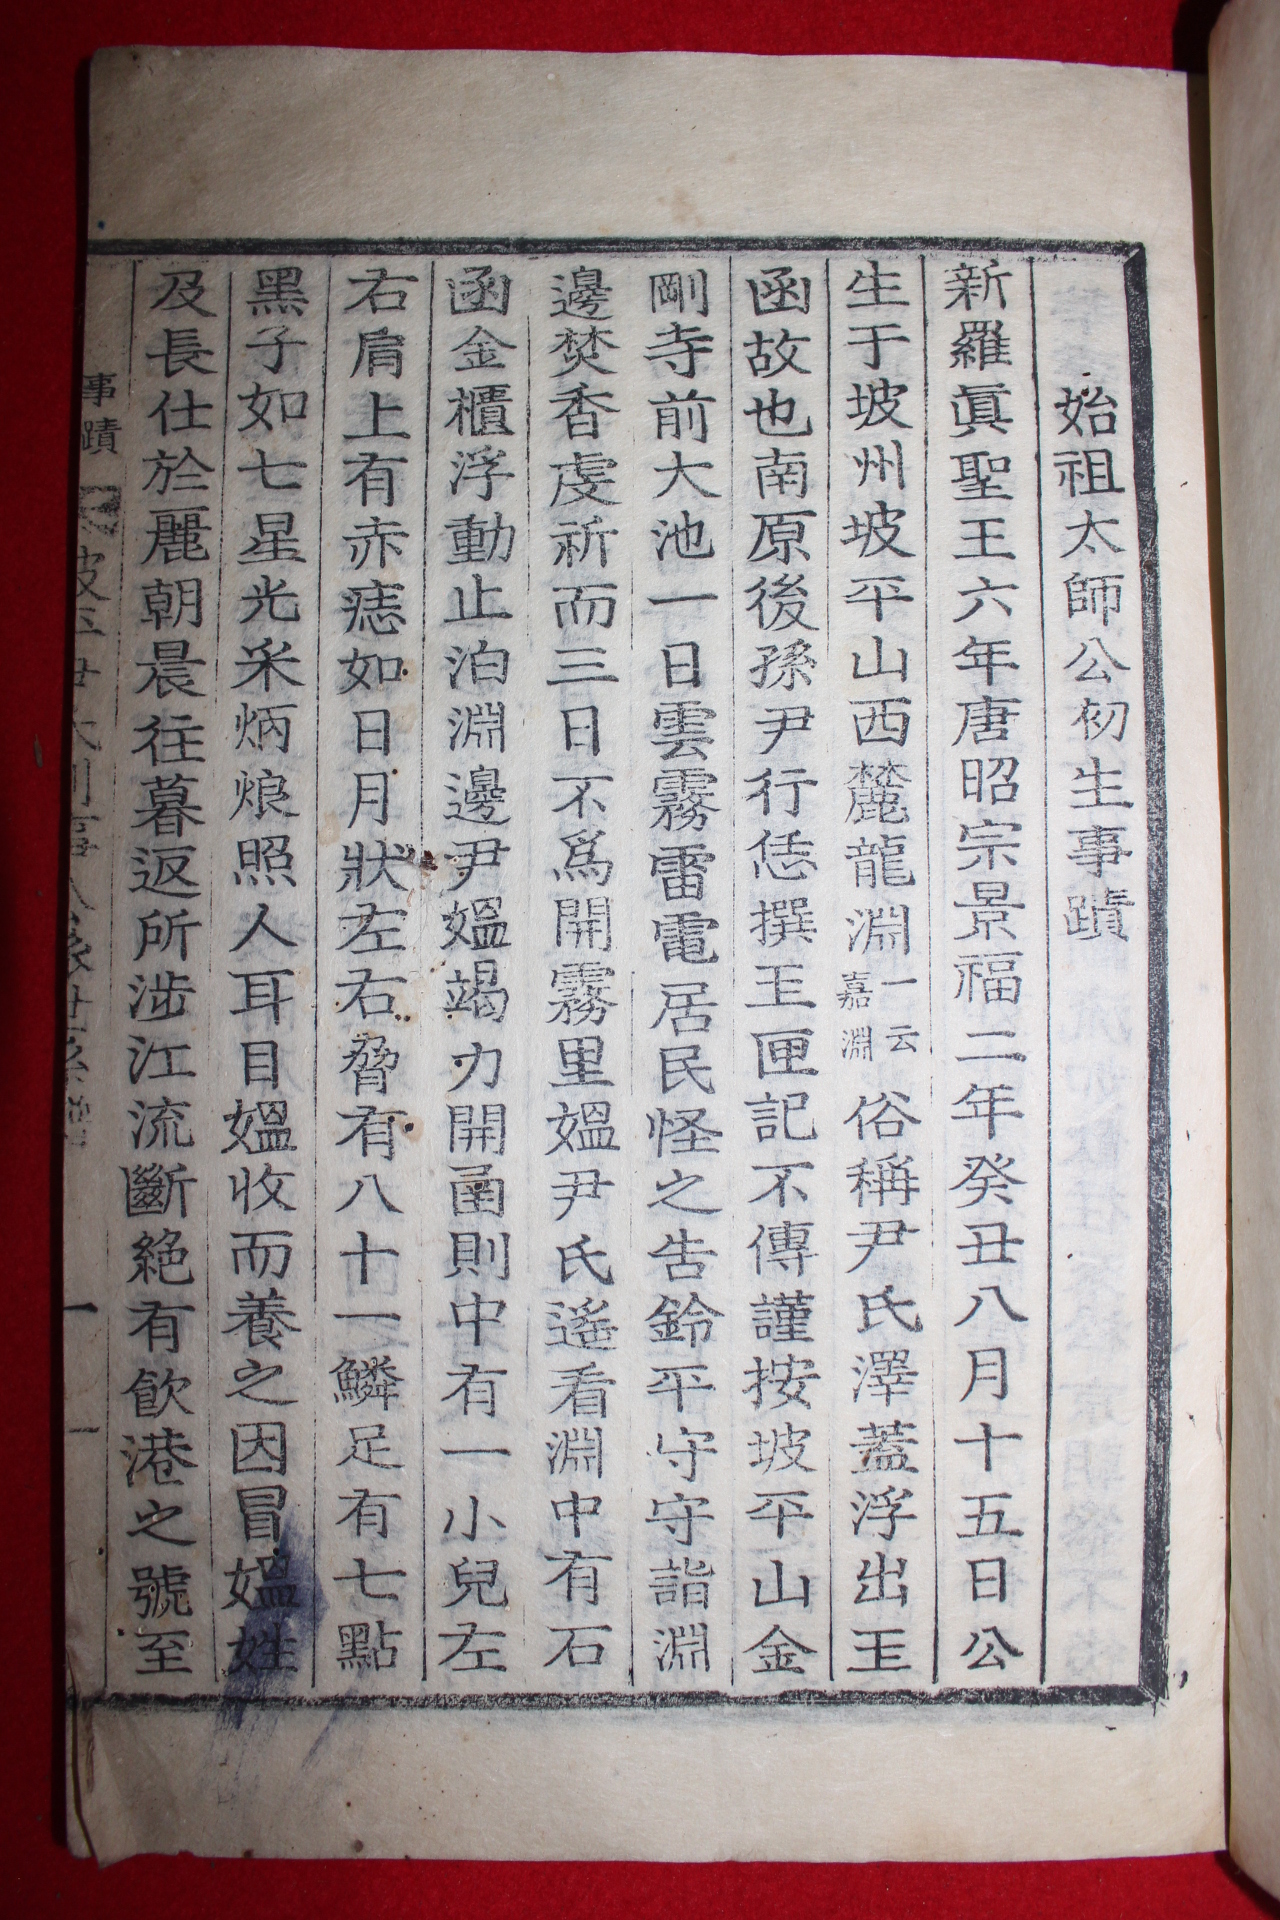 始祖太師公初生事蹟
新羅眞聖王六年唐昭宗景福二年癸丑八月十五日公
生于坡州坡平山西麓龍淵一云嘉淵俗稱尹氏澤蓋浮出玉
函故也南原後孫尹行恁撰玉匣記不傳謹按坡平山金
剛寺前大池一日雲霧雷電居民怪之告鈴平守守詣淵
邊焚香虔祈而三日不爲開霧里媼尹氏遙看淵中有石
函金櫃浮動止泊淵邊尹媼竭力開函則中有一小兒左
右肩上有赤痣如日月狀左右脅有八十一鱗足有七點
黑子如七星光采炳烺照人耳目媼收而養之因冒媼姓
及長仕於麗朝晨往暮返所涉江流斷絶有飮港之號至
事蹟
一